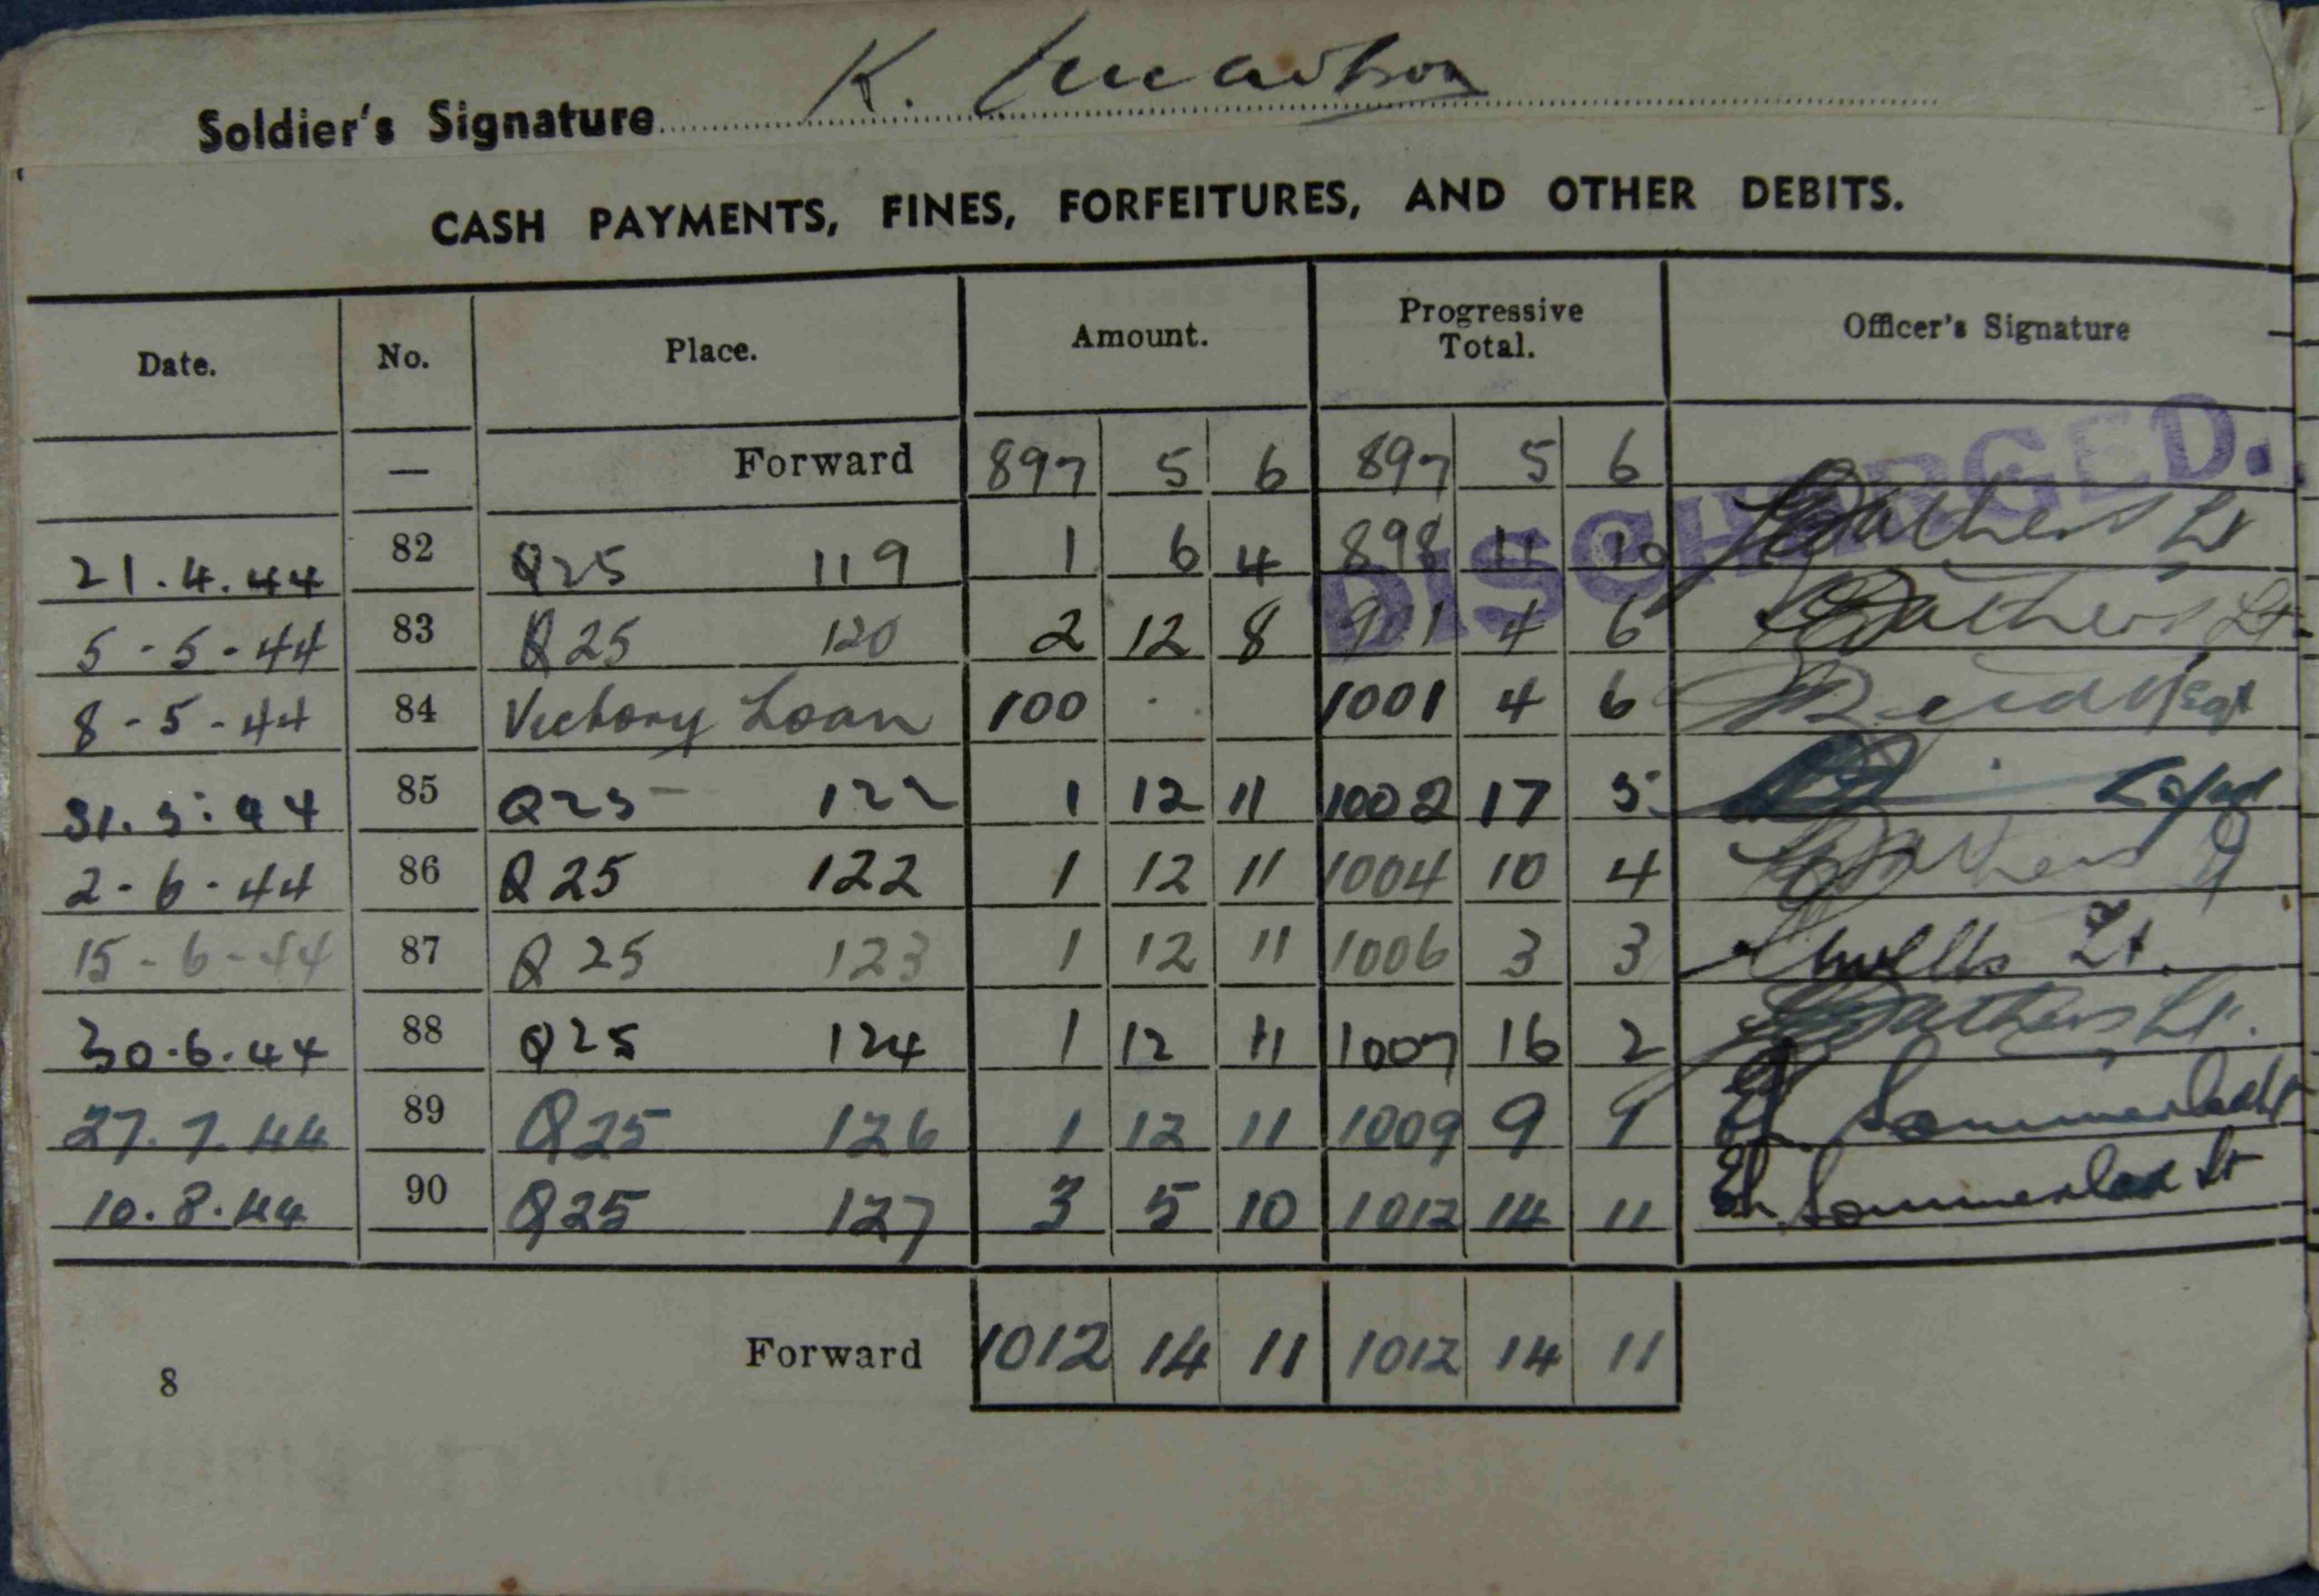 Soldier's Signature K.
CASH PAYMENTS, FINES, FORFEITURES, AND OTHER DEBITS.
Date. No. Place. Amount. Progressive Total. Officer's Signature
— Forward 897 5 6 897 5 6
DISCHARGED.
21.4.44 82 Q25 119 1 6 4 898 11 10 Lt
5-5-44 83 Q25 120 2 12 8 901 4 6 Lt.
8-5-44 84 Victory Loan 100 . . 1001 4 6
31.5.44 85 Q25 122 1 12 11 1002 17 5
2-6-44 86 Q25 122 1 12 11 1004 10 4
15-6-44 87 Q25 123 1 12 11 1006 3 3 Lt.
30.6.44 88 Q25 124 1 12 11 1007 16 2 Lt.
27.7.44 89 Q25 126 1 12 11 1009 9 1
10.8.44 90 Q25 127 3 5 10 1012 14 11 Sommerlad Lt
Forward 1012 14 11 1012 14 11
8